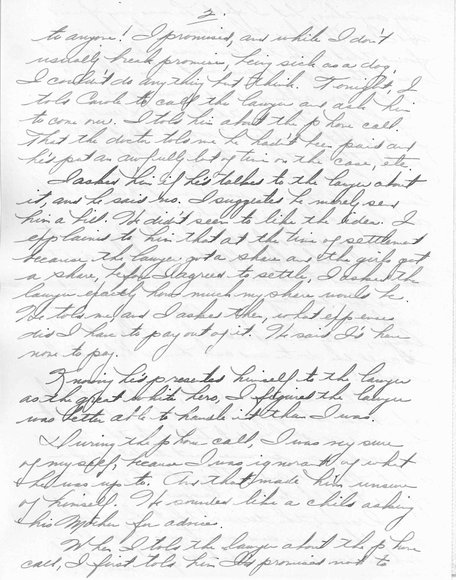 2.
to anyone! I promised, and while I don't
usually break promises, being sick as a dog,
I couldn't do anything but think. Tonight, I
told Carole to call the lawyer and ask him
to come over. I told him about the phone call.
That the doctor told me he hadn't been paid and
he'd put an awfully lot of time on the case, etc.
I asked him if he'd talked to the lawyer about
it, and he said no. I suggested he merely send
him a bill. He didn't seem to like the idea. I
explained to him that at the time of settlement
because the lawyer got a share and the girls got
a share, before I agreed to settle, I asked the
lawyer exactly how much my share would be.
He told me and I asked then, what expenses
did I have to pay out of it. He said I'd have
none to pay.
Knowing he's presented himself to the lawyer
as the great white hero, I figured the lawyer
was better able to handle it than I was.
During the phone call, I was very sure
of myself, because I was ignorant of what
he was up to. And that made him unsure
of himself. He sounded like a child asking
his Mother for advice.
When I told the lawyer about the phone
call, I first told him I'd promised not to